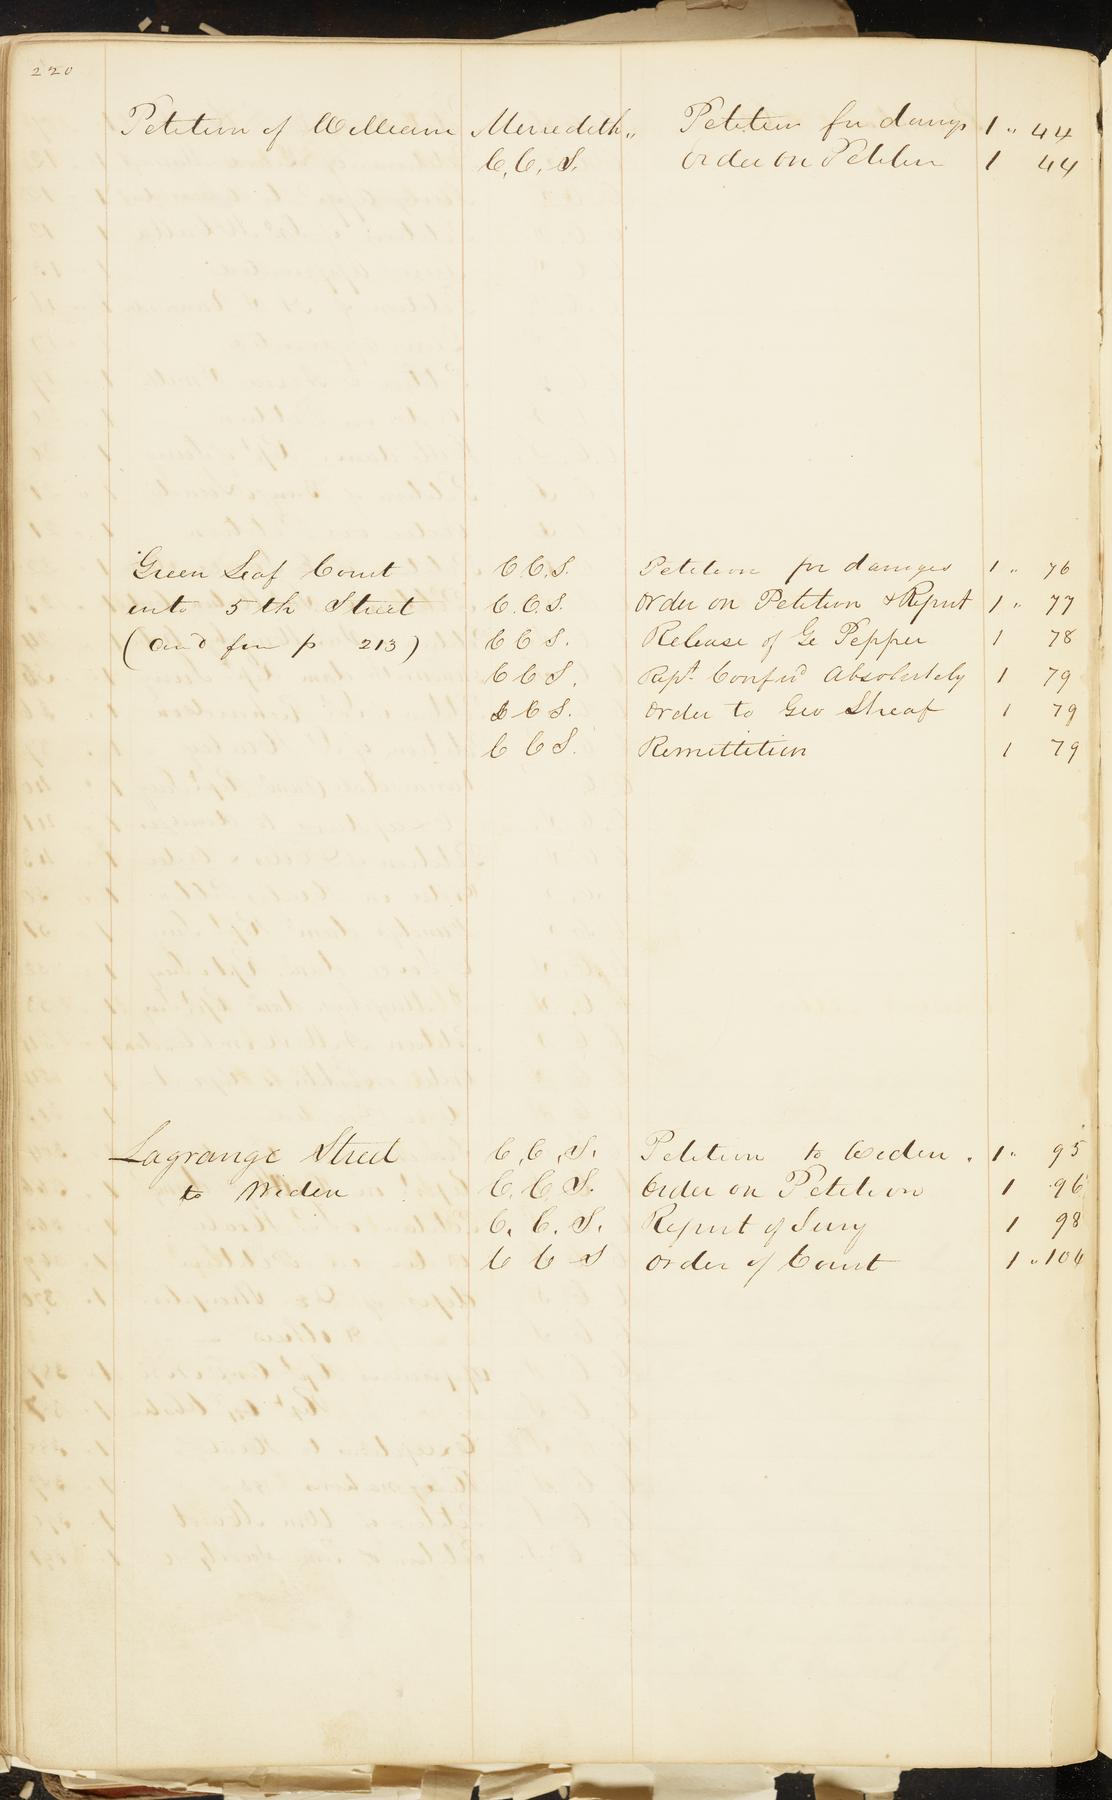 220
Petition of William Meredith „ Petition for damgs 1 „ 44
C. C. S. Order on Petition 1 44
Green Leaf Court C C. S. Petition for damages 1 „ 76
into 5th Street C. C. S. Order on Petition & Report 1 „ 77
(Con'd from p 213) C C S. Release of Ge Pepper 1 78
C C S. Rept. Confird Absolutely 1 79
C C S. Order to Geo Sheaf 1 79
C C S. Remittition 1 79
Lagrange Street C. C. S. Petition to Widen . 1 „ 95
to Widen C. C. S. Order on Petition 1 96
C. C. S. Report of Jury 1 98
C C S Order of Court 1 „ 104